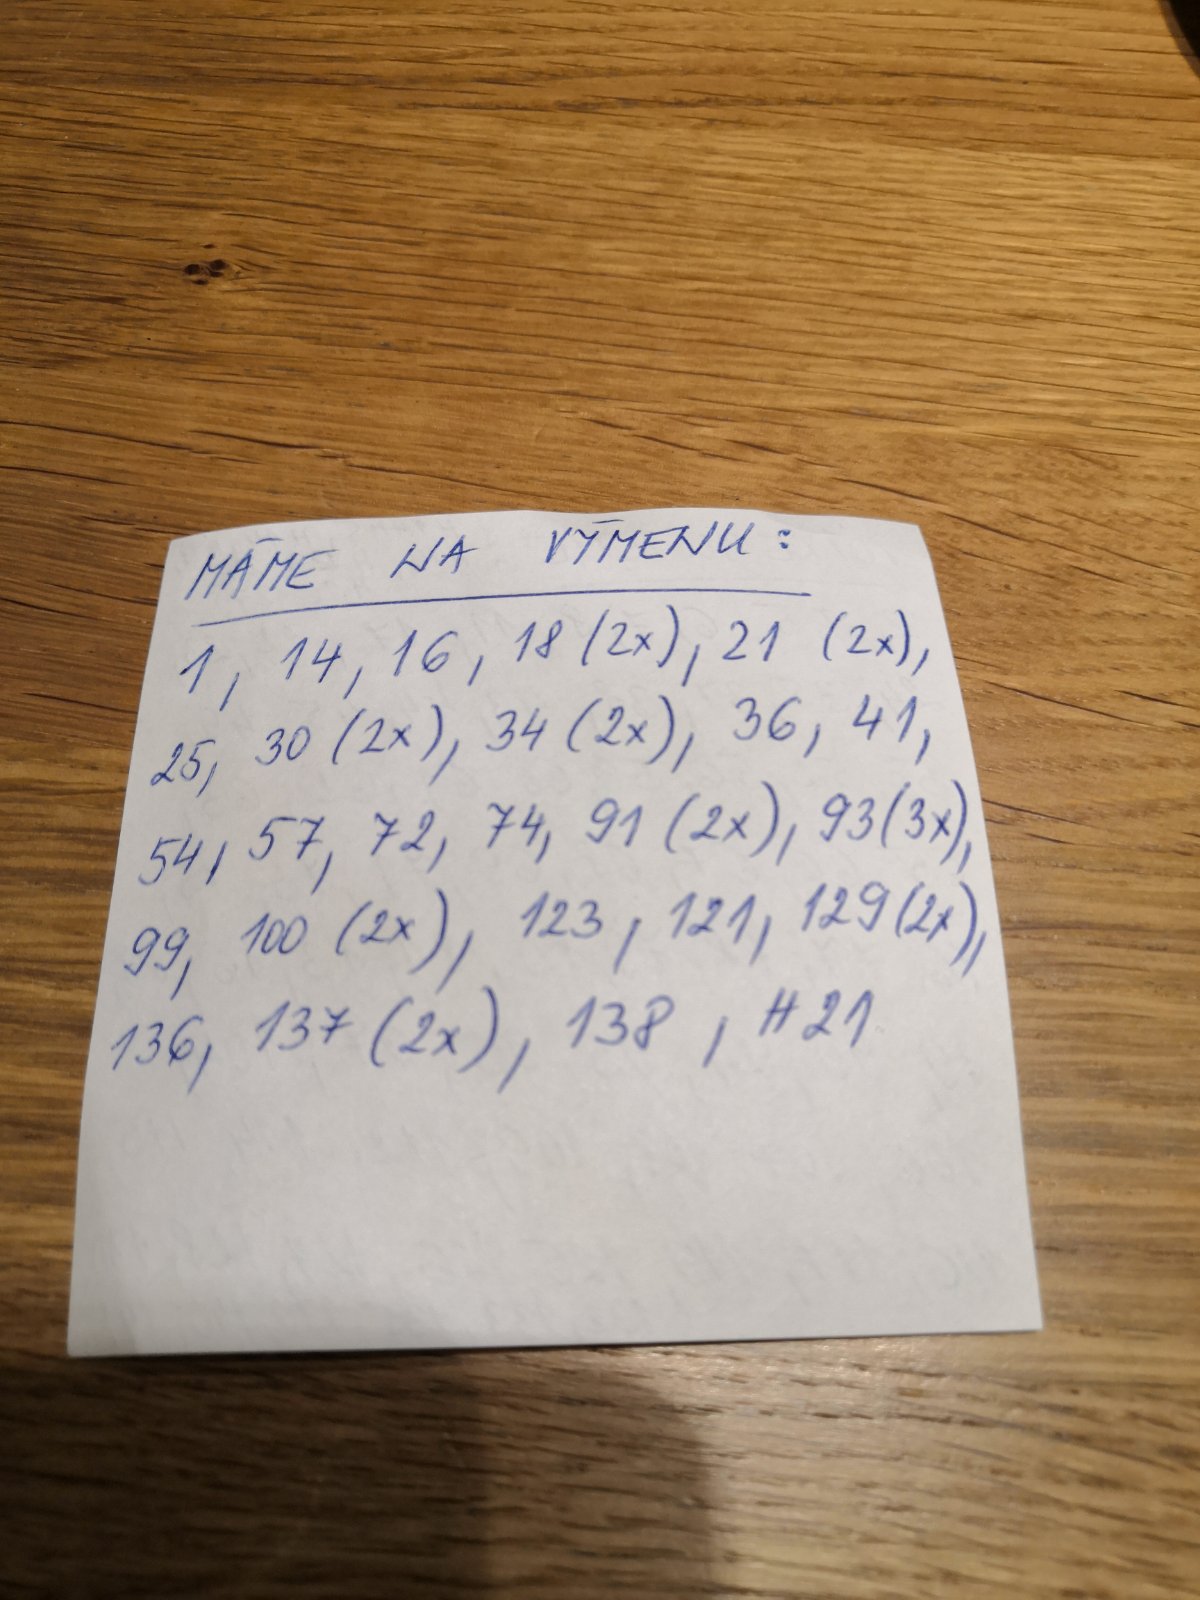 MÁME NA VÝMENU:
1, 14, 16, 18 (2x), 21 (2x),
25, 30 (2x), 34 (2x), 36, 41,
54, 57, 72, 74, 91 (2x), 93 (3x),
99, 100 (2x), 123, 121, 129 (2x),
136, 137 (2x), 138, H21